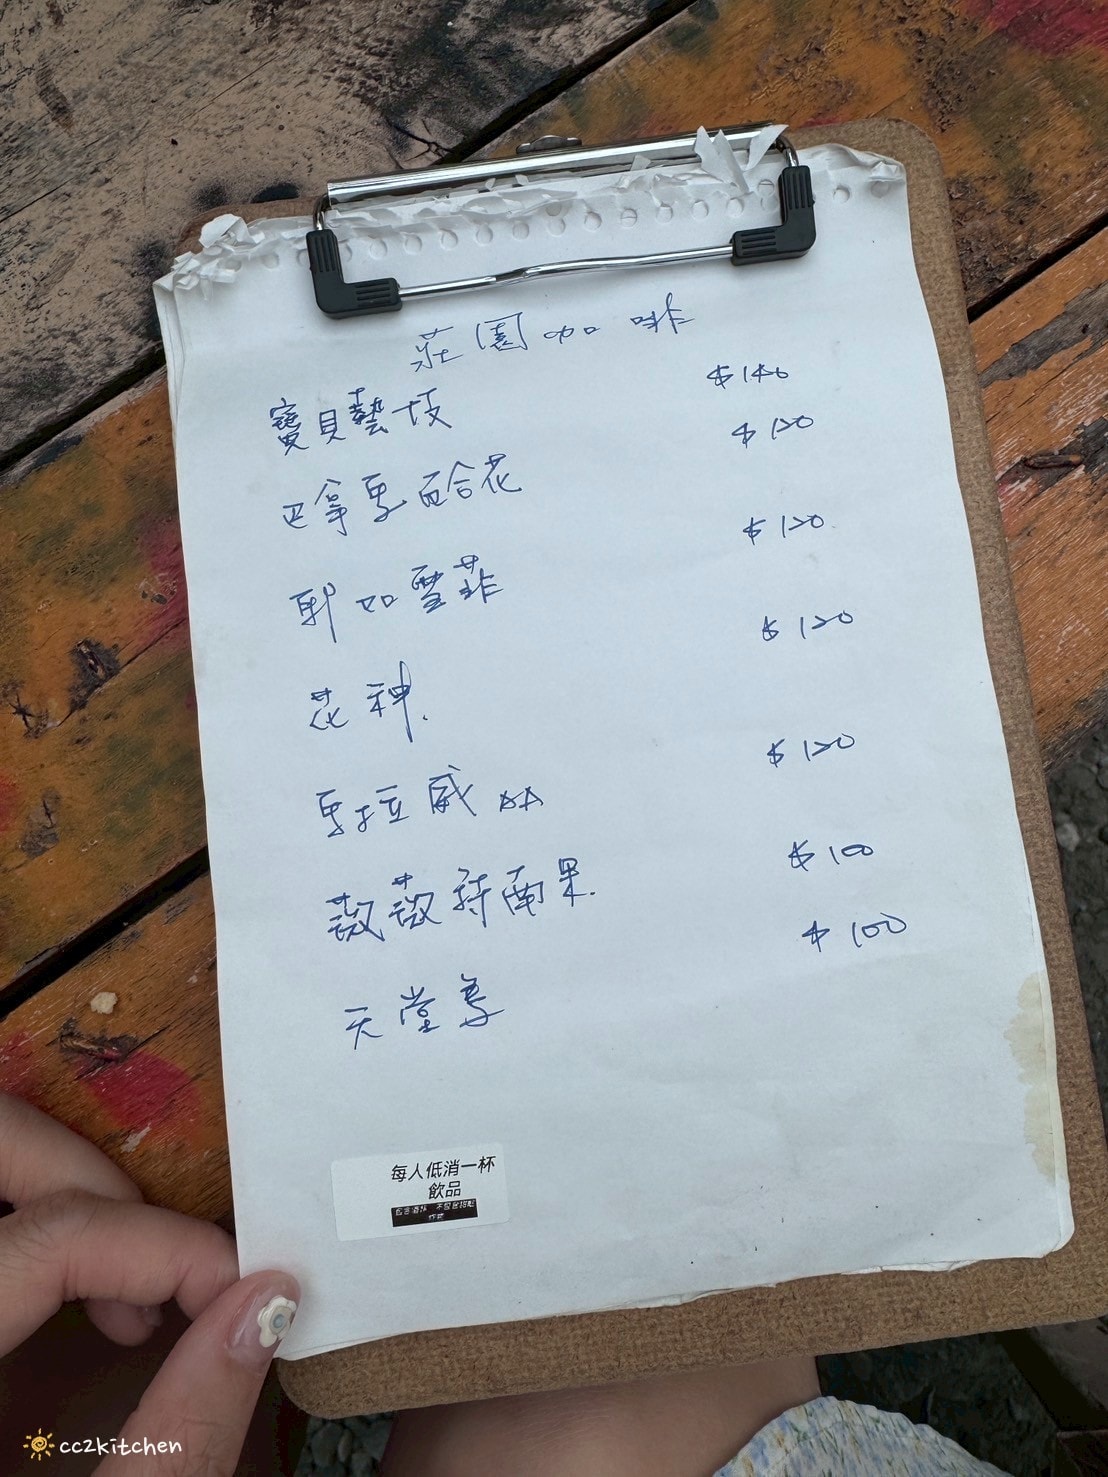 莊園咖啡
寶貝藝妓 $140
巴拿馬百合花 $120
耶加雪菲 $120
花神 $120
馬拉威 AA $120
薇薇特南果 $100
天堂鳥 $100
每人低消一杯
飲品
cc2kitchen